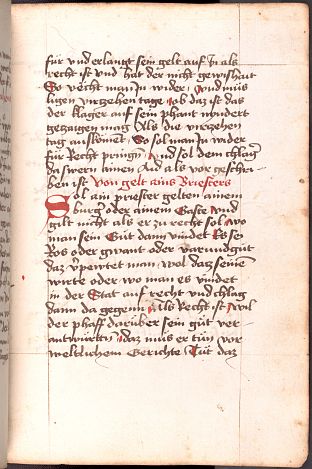 für vnd erlangt sein gelt auf In als
recht ist vnd hat der nicht gewishait
So vecht man In wider vnd müs
ligen virzehen tage ob daz ist das
der klager auf sein phant mindert
gezaigen mag Als die virzehen
tag auskomet So sol man In wider
für Recht pringn Vnd sol dem chlag
da swern ainen Aid als vor geschri
ben ist Von gelt ains Briesters
Sol ain priester gelten ainem
burg oder ainem Gaste vnd
gilt nicht als er zu recht sol wo
man sein Güt dann vindet Rosen
Ros oder gwant oder varundgüt
daz verpewtet man wol datz seinem
wirte oder wo man es vindet
in der Stat auf recht vnd chlag
dann da gegenn Als Recht ist wil
der phaff darüber sein güt ver
antwürten daz mus er tün vor
weltlichem Gerichte Tüt daz